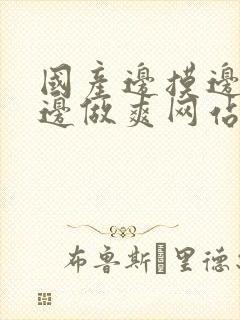 國產邊摸邊
邊做爽网佔
布鲁斯 里德